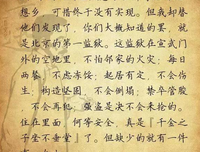 想乡，可惜终于没有实现。但我却替
他们发现了，你们大概知道的罢，就
是北京的第一监狱。这监狱在宣武门
外的空地里，不怕邻家的火灾；每日
两餐，不虑冻馁；起居有定，不会伤
生；构造坚固，不会倒塌；禁卒管着，
不会再犯；强盗是决不会来抢的。
住在里面，何等安全，真是“千金之
子坐不垂堂”了。但缺少的就有一件